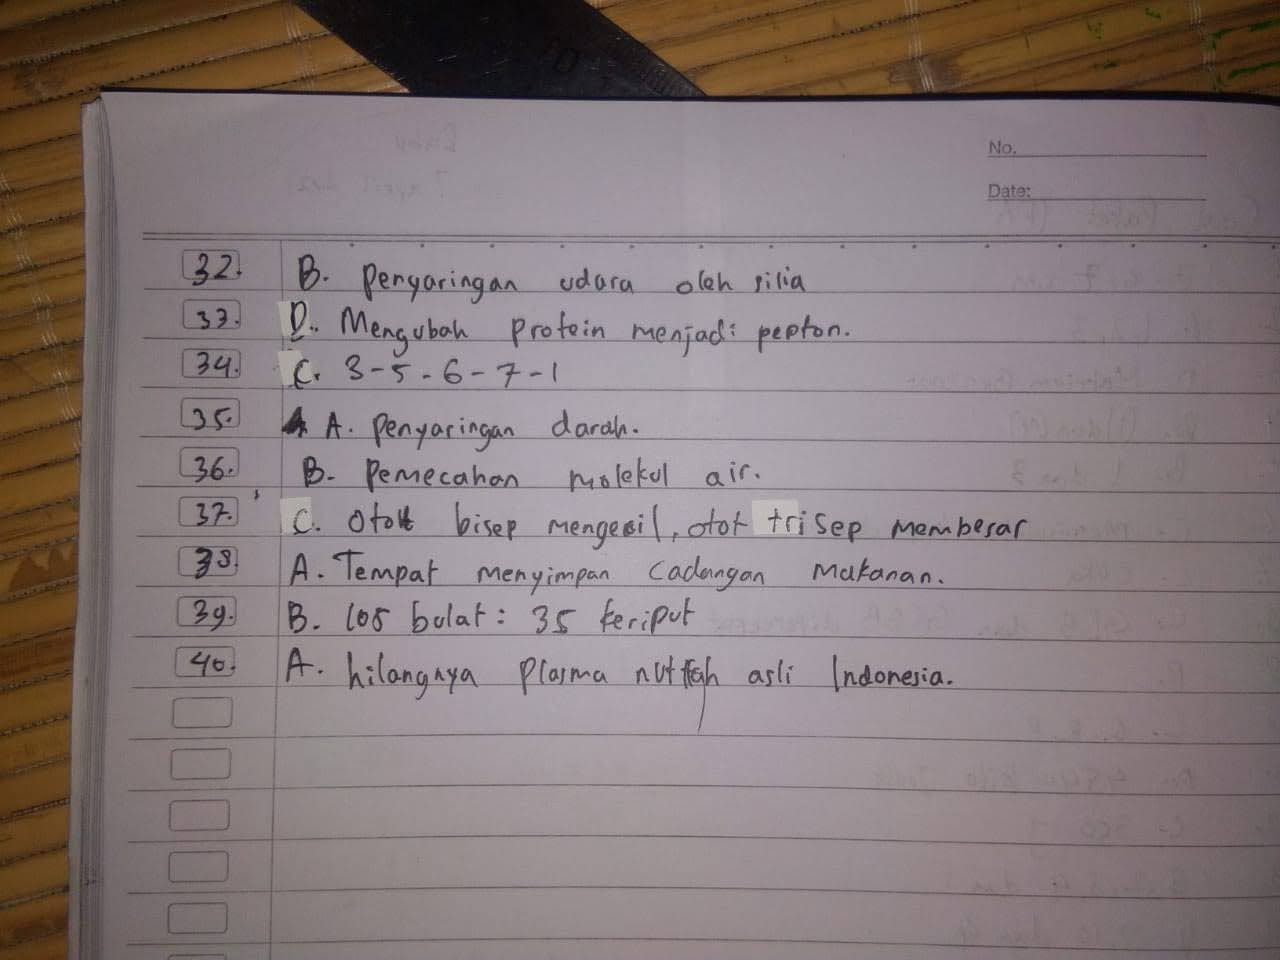 No.
Date:
32. B. Penyaringan udara oleh silia
33. D. Mengubah protein menjadi pepton.
34. C. 3-5-6-7-1
35. A. Penyaringan darah.
36. B. Pemecahan molekul air.
37. C. Otot bisep mengecil, otot trisep membesar
38. A. Tempat menyimpan cadangan makanan.
39. B. 105 bulat : 35 keriput
40. A. hilangnya Plasma nutfah asli Indonesia.